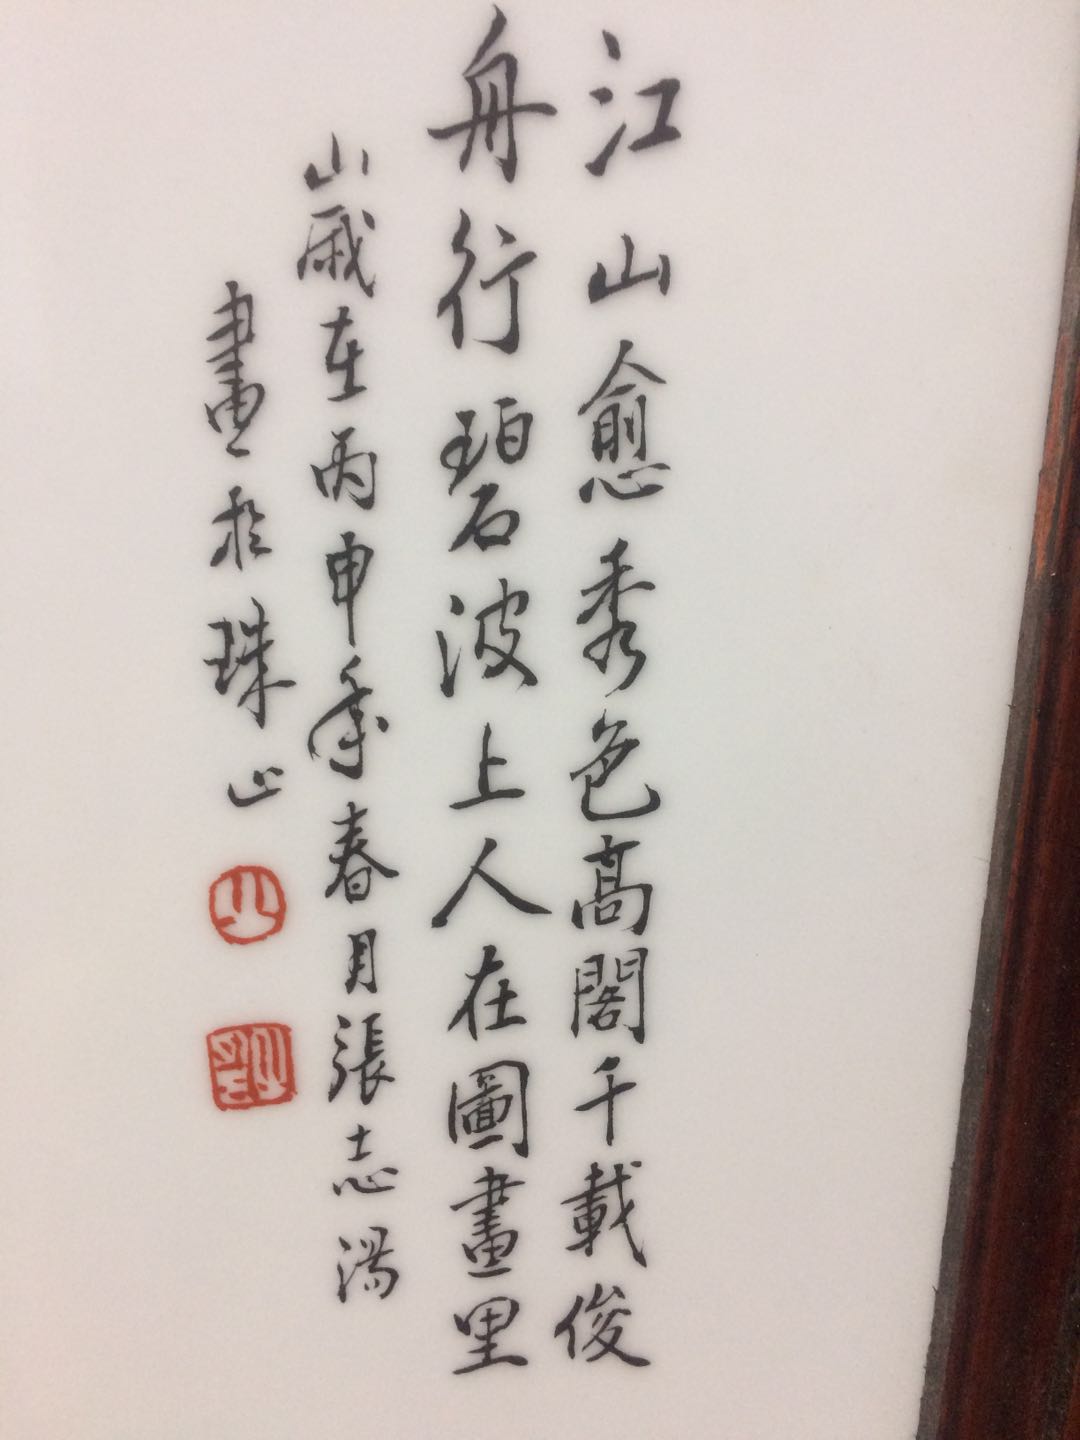 江山愈秀色高閣千載俊
舟行碧波上人在圖畫里
歲在丙申年春月張志湯
畫於珠山